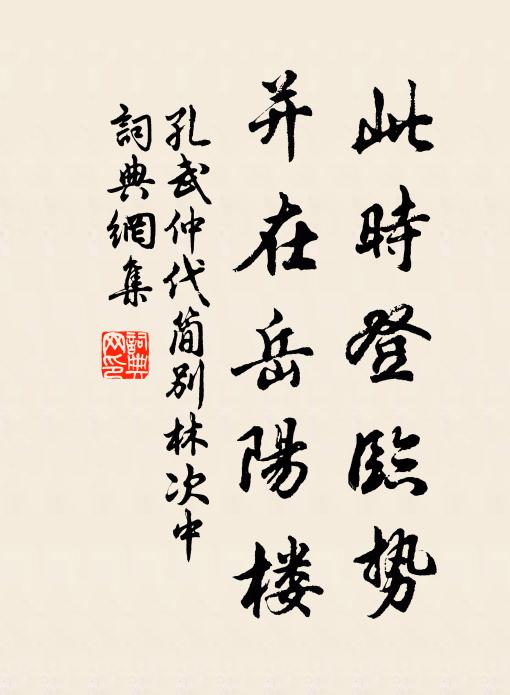 此時登臨势
并在岳陽楼
孔武仲代简别林次中
詞典網集
詞典
网印